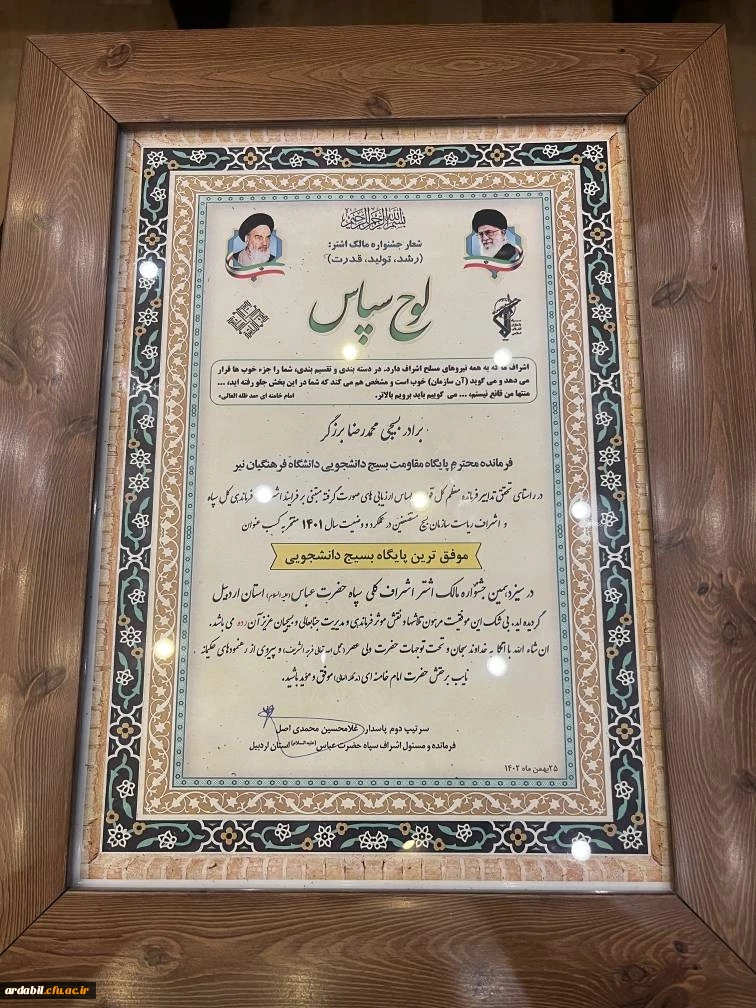 بسم الله الرحمن الرحیم
شعار جشنواره مالک اشتر:
(رشد، تولید، قدرت)
لوح سپاس
اشراف ما که به همه نیروهای مسلح اشراف دارد. در دسته بندی و تقسیم بندی، شما را جزء خوب ها قرار
می دهد و می گوید (آن سازمان) خوب است و مشخص هم می کند که شما در این بخش جلو رفته اید، ...
منتها من قانع نیستم، ... می گوییم باید برویم بالاتر.
امام خامنه ای «مد ظله العالی»
برادر بسیجی محمدرضا برزگر
فرمانده محترم پایگاه مقاومت بسیج دانشجویی دانشگاه فرهنگیان نیر
در راستای تحقق تدابیر فرمانده معظم کل اساس ارزیابی های صورت گرفته مبتنی بر فرایند فرماندهی کل سپاه
و اشراف ریاست سازمان بسیج مستضعفین در عملکرد و وضعیت سال ۱۴۰۱ مفتخر به کسب عنوان
موفق ترین پایگاه بسیج دانشجویی
در سیزدهمین جشنواره مالک اشتر اشراف کلی سپاه حضرت عباس (علیه السلام) استان اردبیل
گردیده اید، بی شک این موفقیت مرهون تلاشها و نقش موثر فرماندهی و مدیریت جنابعالی و بسیجیان عزیز آن رده می باشد.
ان شاء الله با اتکا به خداوند سبحان و تحت توجهات حضرت ولی عصر (عجل الله تعالی فرجه الشریف) و پیروی از رهنمودهای حکیمانه
نایب برحقش حضرت امام خامنه ای (مدظله العالی) موفق و موید باشید.
سرتیپ دوم پاسدار غلامحسین محمدی اصل
فرمانده و مسئول اشراف سپاه حضرت عباس (علیه السلام) استان اردبیل
۲۵ بهمن ماه ۱۴۰۲
ardabil.cfu.ac.ir